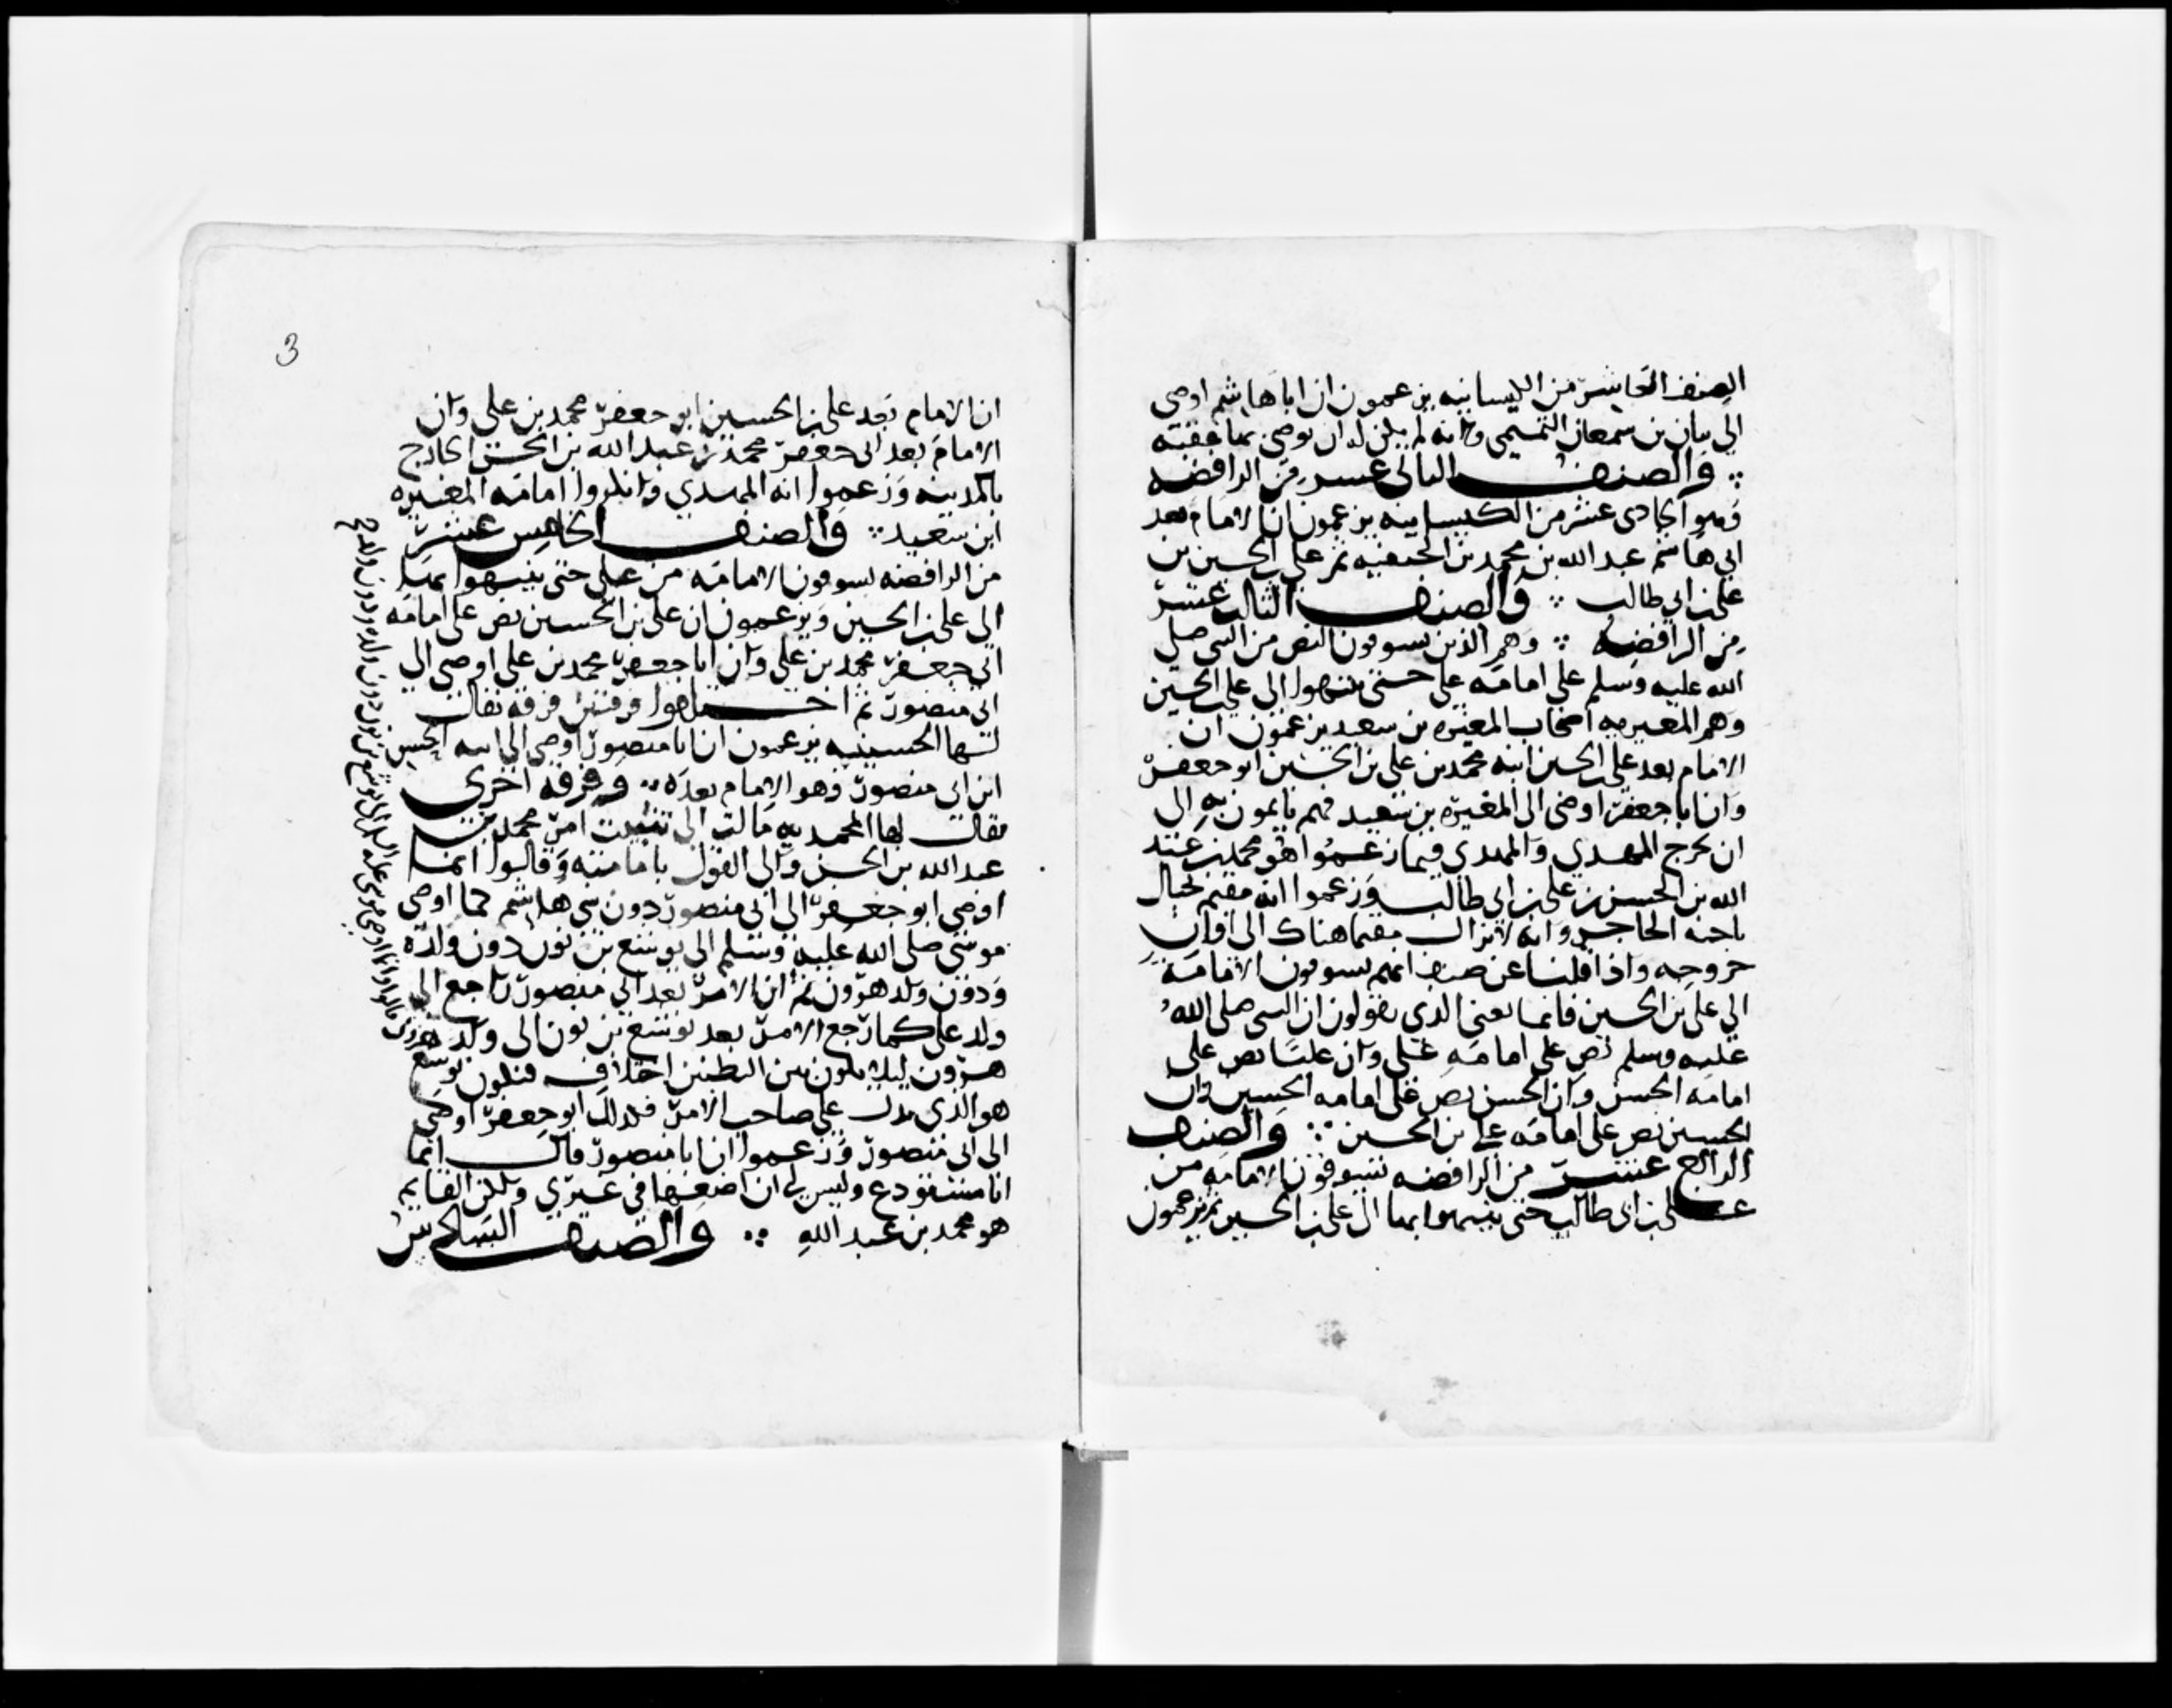 الصنف العاشر من الكيسانيه يزعمون ان اباهاشم اوصى
الى بيان بن سمعان التميمي وانه لم يكن له ان يوصى بها عقبه
والصنف الثانى عشر من الرافضه
وهو الحادى عشر من الكيسانيه يزعمون ان الامام بعد
ابى هاشم عبد الله بن محمد بن الحنفيه ثم على بن الحسين بن
على بن ابى طالب والصنف الثالث عشر
من الرافضه وهم الذين يسوقون النص من النبى صلى
الله عليه وسلم على امامه على حتى ينتهوا الى على بن الحسين
وهم المغيريه اصحاب المغيره بن سعيد يزعمون ان
الامام بعد على بن الحسين ابنه محمد بن على بن الحسين ابو جعفر
وان ابا جعفر اوصى الى المغيره بن سعيد فهم ياتمون به الى
ان يخرج المهدي والمهدي فيما زعموا هو محمد بن عبد
الله بن الحسن بن على بن ابى طالب وزعموا انه مقيم بجبال
ناحيه الحاجر وانه لا يزال مقيما هناك الى اوان
خروجه واذا قلنا عن صنف انهم يسوقون الامامة
الى على بن الحسين فانما نعنى الذي يقولون ان النبى صلى الله
عليه وسلم نص على امامه على وان عليا نص على
امامه الحسن وان الحسن نص على امامه الحسين وان
الحسين نص على امامه على بن الحسين والصنف
الرابع عشر من الرافضه يسوقون الامامه من
على بن ابى طالب حتى ينتهوا بها الى على بن الحسين ثم يزعمون
3
ان الامام بعد على بن الحسين ابو جعفر محمد بن على وان
الامام بعد ابى جعفر محمد بن عبد الله بن الحسن الخارج
بالمدينه وزعموا انه المهدي وانكروا امامه المغيره
ابن سعيد والصنف الخامس عشر
من الرافضه يسوقون الامامه من على حتى ينتهوا بها
الى على بن الحسين ويزعمون ان على بن الحسين نص على امامه
ابى جعفر محمد بن على وان ابا جعفر محمد بن على اوصى الى
ابى منصور ثم اختلفوا فرقتين فرقه يقال
لها الحسينيه يزعمون ان ابا منصور اوصى الى ابنه الحسين
ابن ابى منصور وهو الامام بعده وفرقه اخرى
يقال لها المحمديه مالت الى تثبيت امر محمد بن
عبد الله بن الحسن والى القول بامامته وقالوا انما
اوصى ابو جعفر الى ابى منصور دون بنى هاشم كما اوصى
موسى صلى الله عليه وسلم الى يوشع بن نون دون ولده
ودون ولد هرون ثم ان الامر بعد ابى منصور راجع الى
ولد على كما رجع الامر بعد يوشع بن نون الى ولد هرون
هرون ليلا يكون بين البطنين اختلاف فيكون يوشع
هو الذي يدل على صاحب الامر فكذلك ابو جعفر اوصى
الى ابى منصور وزعموا ان ابا منصور قال انما
انا مستودع وليس لى ان اضعها فى غيري ولكن القايم
هو محمد بن عبد الله والصنف السادس